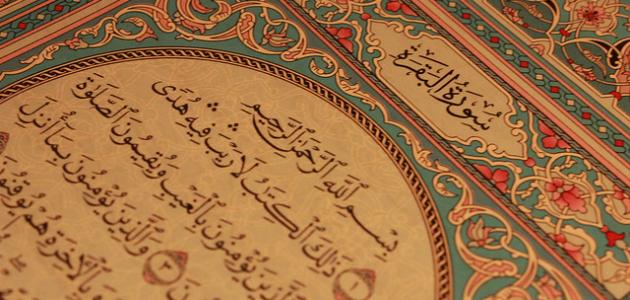 سُورَةُ البَقَرَةِ
بِسْمِ ٱللَّهِ ٱلرَّحْمَٰنِ ٱلرَّحِيمِ
١ ذَٰلِكَ ٱلْكِتَٰبُ لَا رَيْبَ فِيهِ هُدًى
ٱلَّذِينَ يُؤْمِنُونَ بِٱلْغَيْبِ وَيُقِيمُونَ ٱلصَّلَوٰةَ
٣ وَٱلَّذِينَ يُؤْمِنُونَ بِمَآ أُنزِلَ
وَبِٱلْأٓخِرَةِ هُمْ يُوقِنُونَ